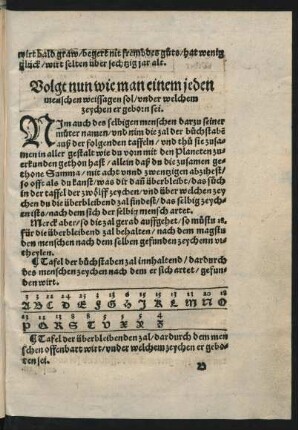 wirt bald graw / begert nit frembdes guts / hat wenig
glück / wirt selten über sechtzig jar alt.
Volgt nun wie man einem jeden
menschen weissagen sol / vnder welchem
zeychen er geborn sei.
NIm auch des selbigen menschen darzu seiner
muter namen / vnd nim die zal der buchstabē
auß der folgenden taffeln / vnd thu sie zusa-
men in aller gestalt wie du von mit den Planeten zu er-
kunden gethon hast / allein daß du die zusamen ge-
thone Summa / mit acht vnnd zwenzigen abzihest /
so offt als du kanst / was dir dañ überbleibt / das such
in der taffel der zwölff zeychen / vnd über welchen zey-
chen du die überbleibend zal findest / das selbig zeych-
en ists / nach dem sich der selbig mensch artet.
Merck aber / so die zal gerad auffgehet / so mustu 28.
für die überbleibend zal behalten / nach dem magstu
den menschen nach dem selben gefunden zeychenn vr-
theylen.
Tafel der buchstaben zal innhaltend / dardurch
des menschen zeychen nach dem er sich artet / gefun-
den wirt.
A B C D E F G H I K L M N O
P Q R S T V X Y Z
Tafel der überbleibenden zal / dardurch dem men
schen offenbart wirt / vnder welchem zeychen er gebo-
ren sei.